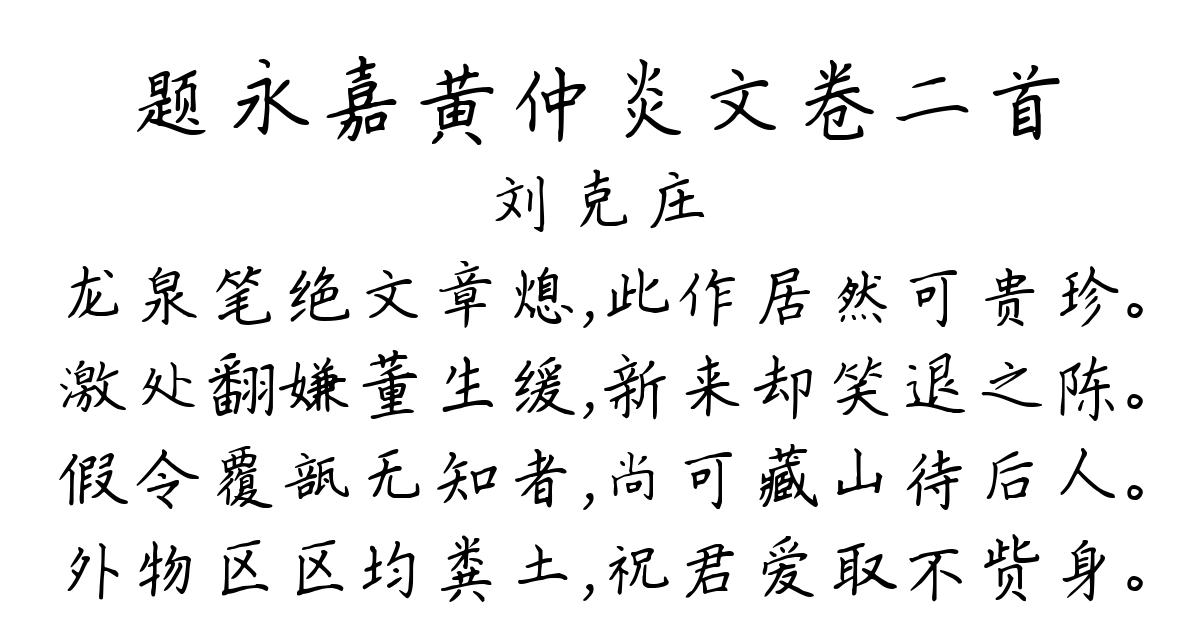 题永嘉黄仲炎文卷二首
刘克庄
龙泉笔绝文章熄,此作居然可贵珍。
激处翻嫌董生缓,新来却笑退之陈。
假令覆瓿无知者,尚可藏山待后人。
外物区区均粪土,祝君爱取不赀身。